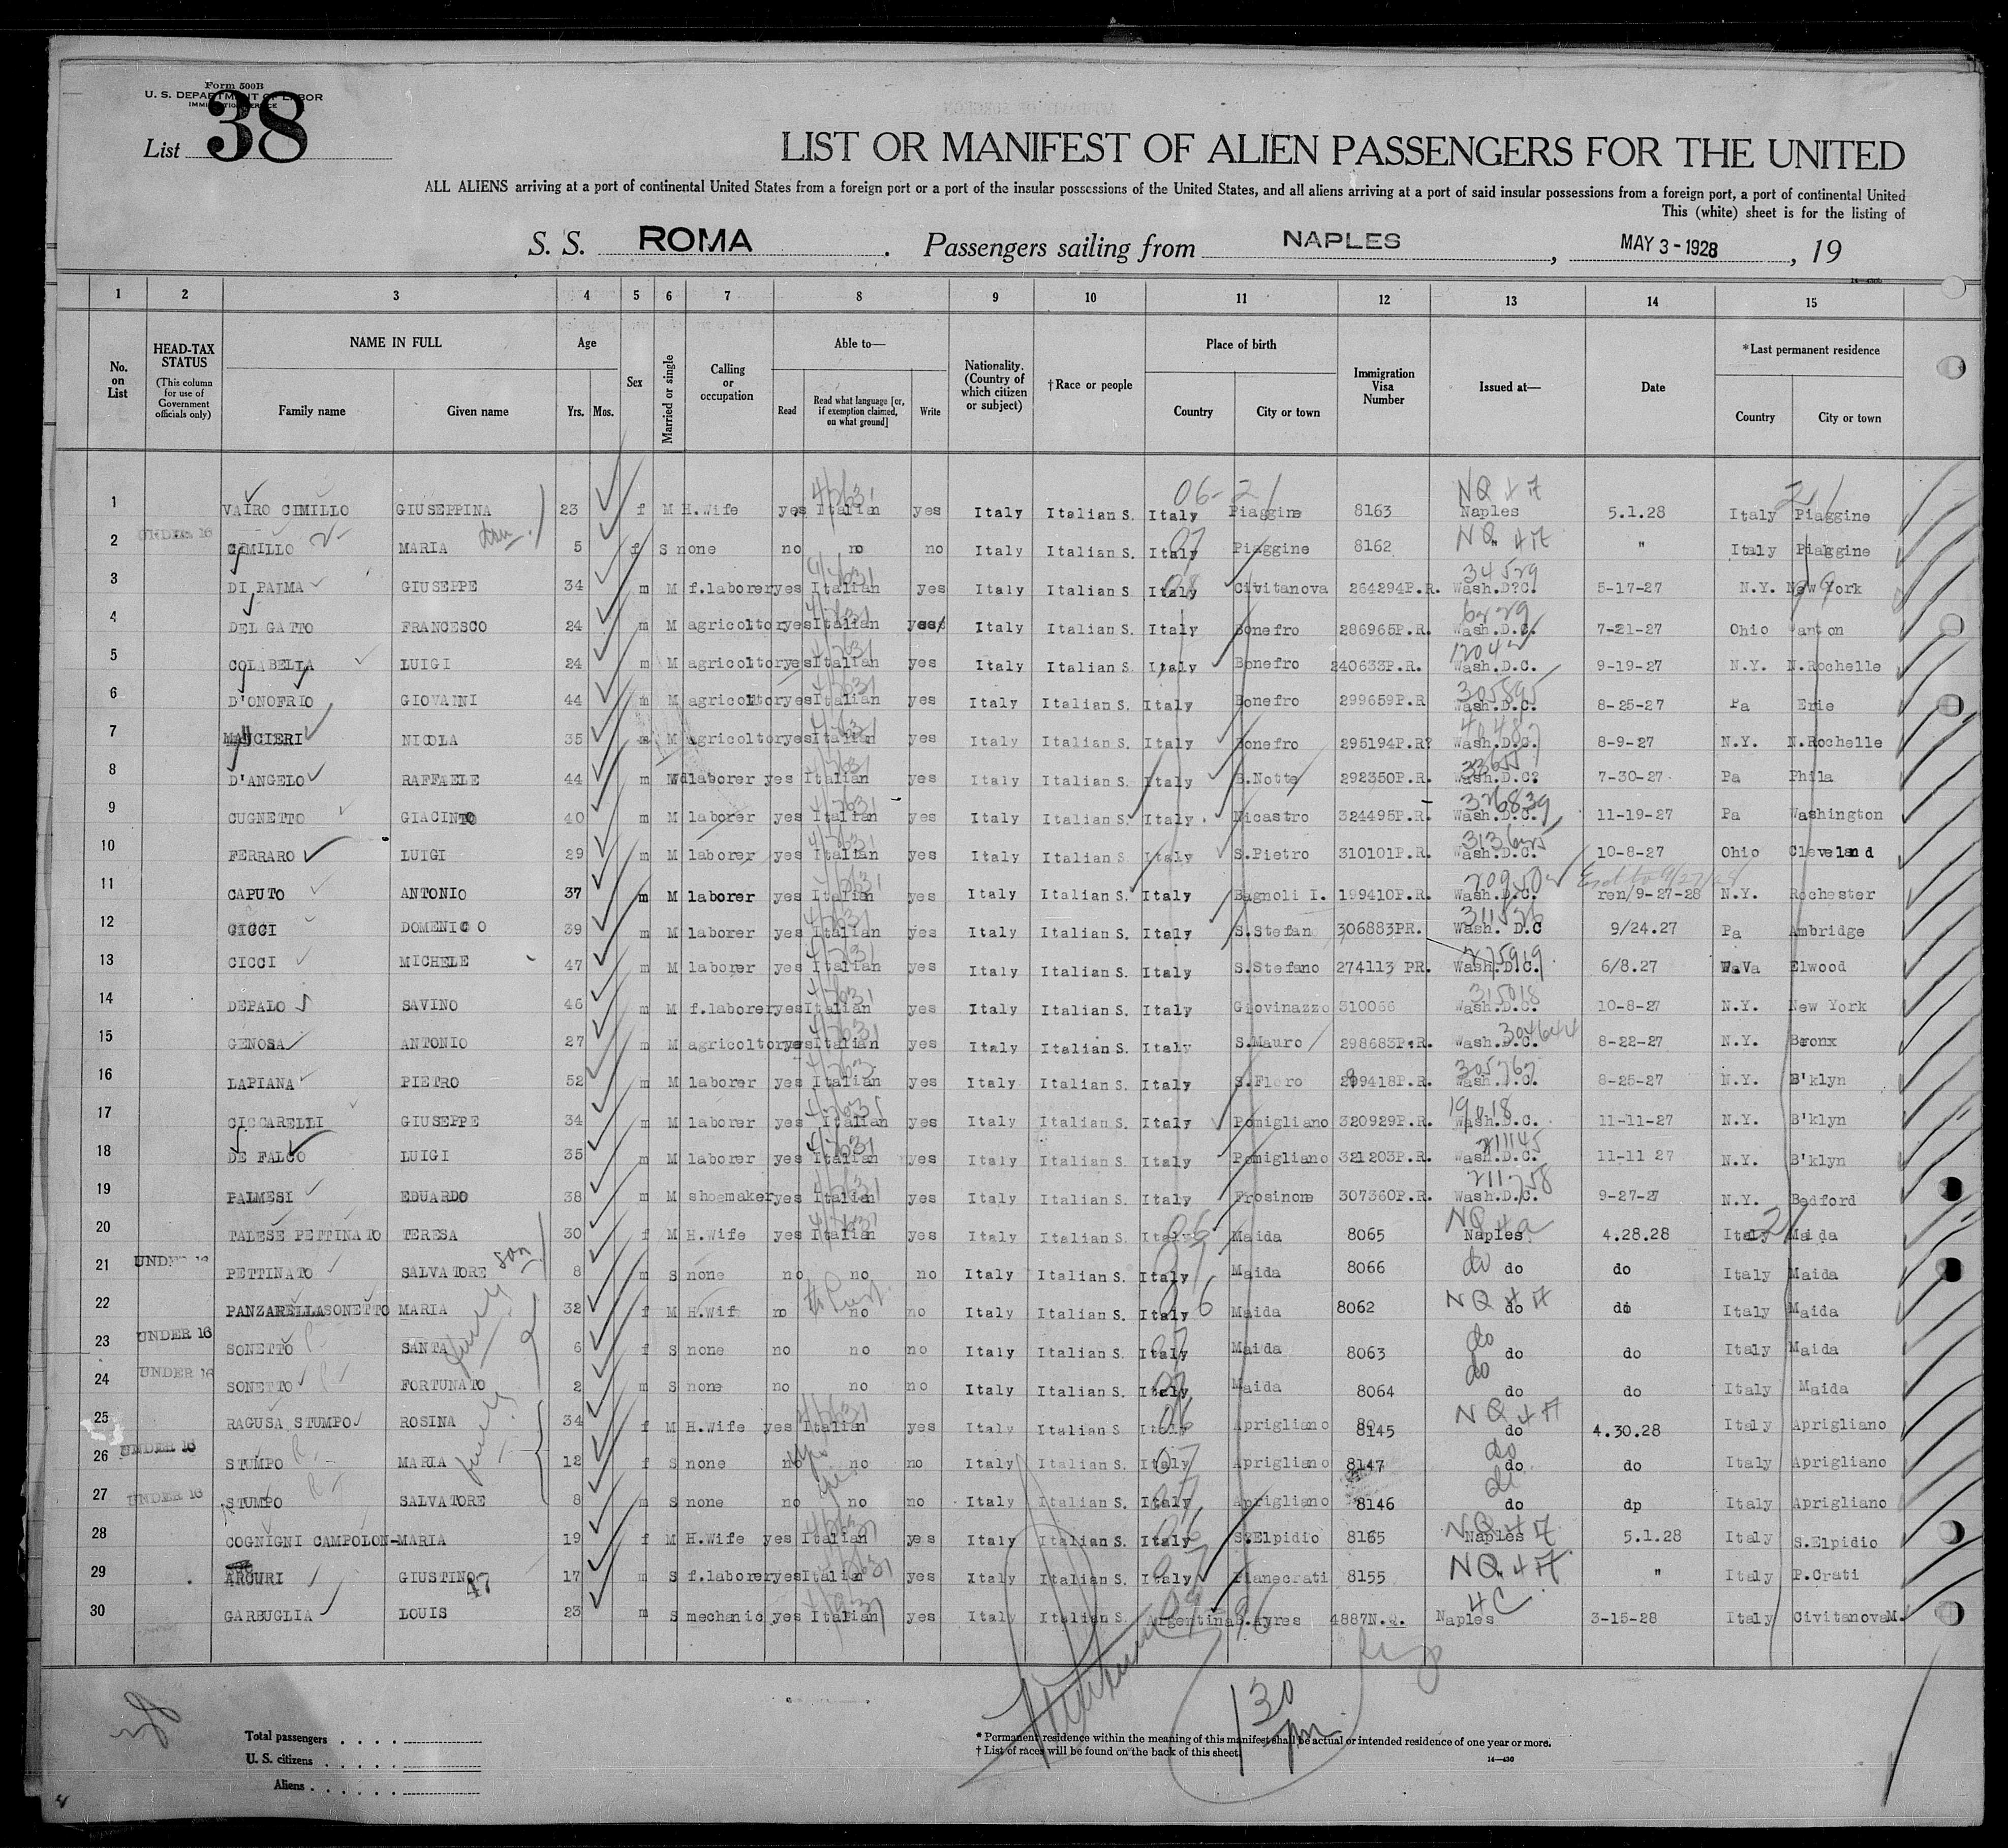 Form 500B
U. S. DEPARTMENT OF LABOR
IMMIGRATION SERVICE
List 38
LIST OR MANIFEST OF ALIEN PASSENGERS FOR THE UNITED
ALL ALIENS arriving at a port of continental United States from a foreign port or a port of the insular possessions of the United States, and all aliens arriving at a port of said insular possessions from a foreign port, a port of continental United
This (white) sheet is for the listing of
S. S. ROMA . Passengers sailing from NAPLES , MAY 3-1928 , 19
14—430
1 2 3 4 5 6 7 8 9 10 11 12 13 14 15
No. on List
HEAD-TAX STATUS (This column for use of Government officials only)
NAME IN FULL Family name Given name
Age Yrs. Mos.
Sex
Married or single
Calling or occupation
Able to— Read Read what language [or, if exemption claimed, on what ground] Write
Nationality. (Country of which citizen or subject)
†Race or people
Place of birth Country City or town
Immigration Visa Number
Issued at—
Date
*Last permanent residence Country City or town
1 VAIRO CIMILLO GIUSEPPINA 23 f M H.Wife yes Italian yes Italy Italian S. Italy Piaggine 8163 NQ Naples 5.1.28 Italy Piaggine
2 UNDER 16 CIMILLO MARIA 5 f S none no no no Italy Italian S. Italy Piaggine 8162 NQ " " Italy Piaggine
3 DI PALMA GIUSEPPE 34 m M f.laborer yes Italian yes Italy Italian S. Italy Civitanova 264294P.R. Wash.D?C. 5-17-27 N.Y. New York
4 DEL GATTO FRANCESCO 24 m M agricoltor yes Italian yes Italy Italian S. Italy Bonefro 286965P.R. Wash.D.C. 7-21-27 Ohio Canton
5 COLABELLA LUIGI 24 m M agricoltor yes Italian yes Italy Italian S. Italy Bonefro 240633P.R. Wash.D.C. 9-19-27 N.Y. N.Rochelle
6 D'ONOFRIO GIOVANNI 44 m M agricoltor yes Italian yes Italy Italian S. Italy Bonefro 299659P.R 305895 Wash.D.C. 8-25-27 Pa Erie
7 MANCIERI NICOLA 35 m M agricoltor yes Italian yes Italy Italian S. Italy Bonefro 295194P.R? Wash.D.C. 8-9-27 N.Y. N.Rochelle
8 D'ANGELO RAFFAELE 44 m Wd laborer yes Italian yes Italy Italian S. Italy B.Notte 292350P.R. Wash.D.C? 7-30-27 Pa Phila
9 CUGNETTO GIACINTO 40 m M laborer yes Italian yes Italy Italian S. Italy Nicastro 324495P.R. 326839 Wash.D.C. 11-19-27 Pa Washington
10 FERRARO LUIGI 29 m M laborer yes Italian yes Italy Italian S. Italy S.Pietro 310101P.R. Wash.D.C. 10-8-27 Ohio Cleveland
11 CAPUTO ANTONIO 37 m M laborer yes Italian yes Italy Italian S. Italy Bagnoli I. 199410P.R. Wash.D.C. ren/9-27-28 N.Y. Rochester
12 CICCI DOMENICO 39 m M laborer yes Italian yes Italy Italian S. Italy S.Stefano 306883PR. Wash. D.C 9/24.27 Pa Ambridge
13 CICCI MICHELE 47 m M laborer yes Italian yes Italy Italian S. Italy S.Stefano 274113 PR. 275919 Wash.D.C. 6/8.27 W.Va Elwood
14 DEPALO SAVINO 46 m M f.laborer yes Italian yes Italy Italian S. Italy Giovinazzo 310066 315018 Wash.D.C. 10-8-27 N.Y. New York
15 GENOSA ANTONIO 27 m M agricoltor yes Italian yes Italy Italian S. Italy S.Mauro 298683P.R. Wash.D.C. 8-22-27 N.Y. Bronx
16 LAPIANA PIETRO 52 m M laborer yes Italian yes Italy Italian S. Italy S.Floro 299418P.R. Wash.D.C. 8-25-27 N.Y. B'klyn
17 CICCARELLI GIUSEPPE 34 m M laborer yes Italian yes Italy Italian S. Italy Pomigliano 320929P.R. Wash.D.C. 11-11-27 N.Y. B'klyn
18 DE FALCO LUIGI 35 m M laborer yes Italian yes Italy Italian S. Italy Pomigliano 321203P.R. Wash.D.C. 11-11 27 N.Y. B'klyn
19 PALMESI EDUARDO 38 m M shoemaker yes Italian yes Italy Italian S. Italy Frosinone 307360P.R. 211758 Wash.D.C. 9-27-27 N.Y. Bedford
20 TALESE PETTINATO TERESA 30 f M H.Wife yes Italian yes Italy Italian S. Italy Maida 8065 NQ Naples 4.28.28 Italy Maida
21 UNDER 16 PETTINATO SALVATORE son 8 m S none no no no Italy Italian S. Italy Maida 8066 do do do Italy Maida
22 PANZARELLASONETTO MARIA 32 f M H.Wif no no no Italy Italian S. Italy Maida 8062 NQ do do Italy Maida
23 UNDER 16 SONETTO SANTA 6 f S none no no no Italy Italian S. Italy Maida 8063 do do do Italy Maida
24 UNDER 16 SONETTO FORTUNATO 2 m S none no no no Italy Italian S. Italy Maida 8064 do do do Italy Maida
25 RAGUSA STUMPO ROSINA 34 f M H.Wife yes Italian yes Italy Italian S. Italy Aprigliano 8145 NQ do 4.30.28 Italy Aprigliano
26 UNDER 16 STUMPO MARIA 12 f S none no no no Italy Italian S. Italy Aprigliano 8147 do do do Italy Aprigliano
27 UNDER 16 STUMPO SALVATORE 8 m S none no no no Italy Italian S. Italy Aprigliano 8146 do do dp Italy Aprigliano
28 COGNIGNI CAMPOLON-MARIA 19 f M H.Wife yes Italian yes Italy Italian S. Italy S.Elpidio 8165 NQ Naples 5.1.28 Italy S.Elpidio
29 ARCURI GIUSTINO 17 m S f.laborer yes Italian yes Italy Italian S. Italy Pianecrati 8155 NQ " " Italy P.Crati
30 GARBUGLIA LOUIS 23 m S mechanic yes Italian yes Italy Italian S. Argentina B.Ayres 4887N.Q. 4C Naples 3-15-28 Italy CivitanovaM.
130 pm
Total passengers . . . .
U. S. citizens . . . . .
Aliens . . . . . .
* Permanent residence within the meaning of this manifest shall be actual or intended residence of one year or more.
† List of races will be found on the back of this sheet.
14—430